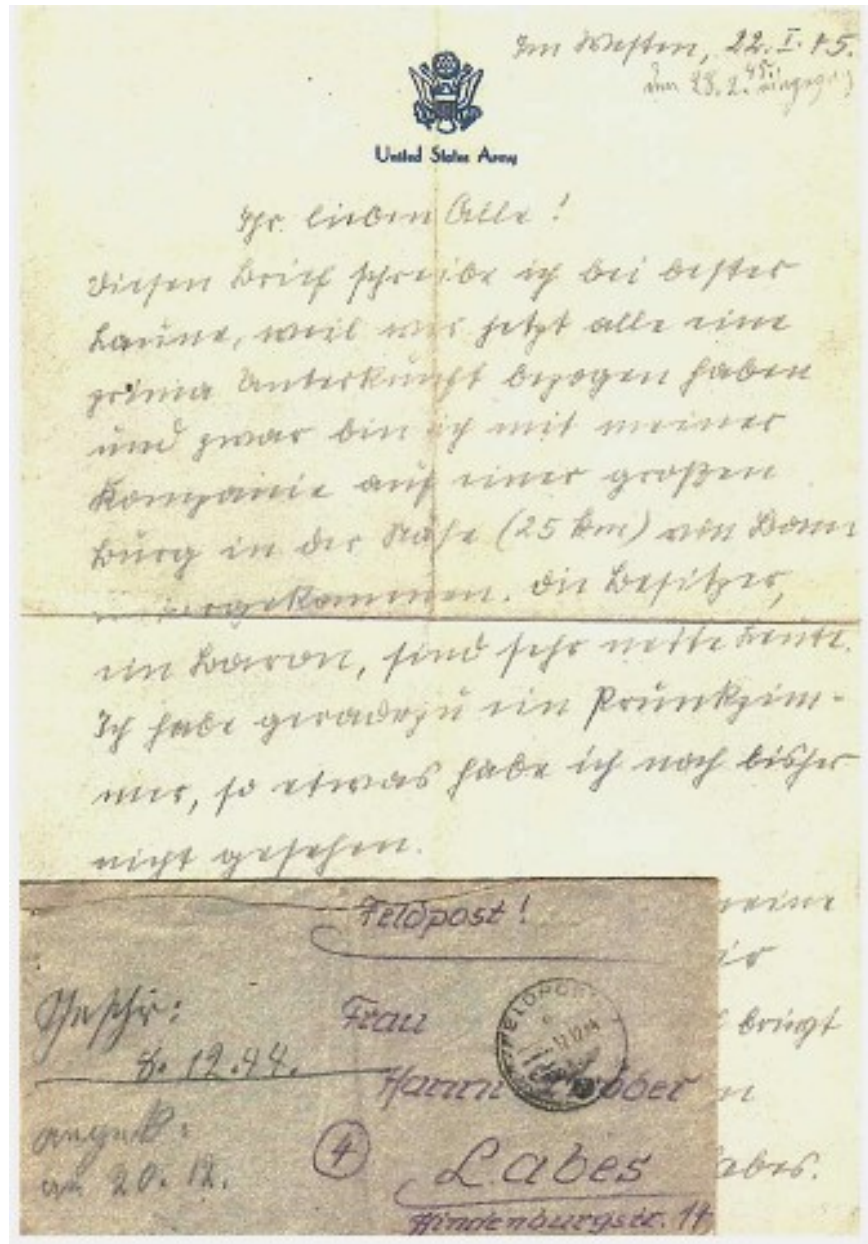 Im Westen, 22.I.45.
am 28.2.45. eingeg.
United States Army
Ihr lieben Alle!
Diesen Brief schreibe ich bei bester
Laune, weil wir jetzt alle eine
prima Unterkunft bezogen haben
und zwar bin ich mit meiner
Kompanie auf einer großen
Burg in der Nähe (25 km) von Bonn
untergekommen. Die Besitzer,
ein Baron, sind sehr nette Leute.
Ich habe geradezu ein Prunkzim-
mer, so etwas habe ich noch bisher
nicht gesehen.
meine
bringt
Labes.
Feldpost!
Geschr:
8.12.44.
angek.
am 20.12.
Frau
4
Labes
Hindenburgstr. 14
FELDPOST